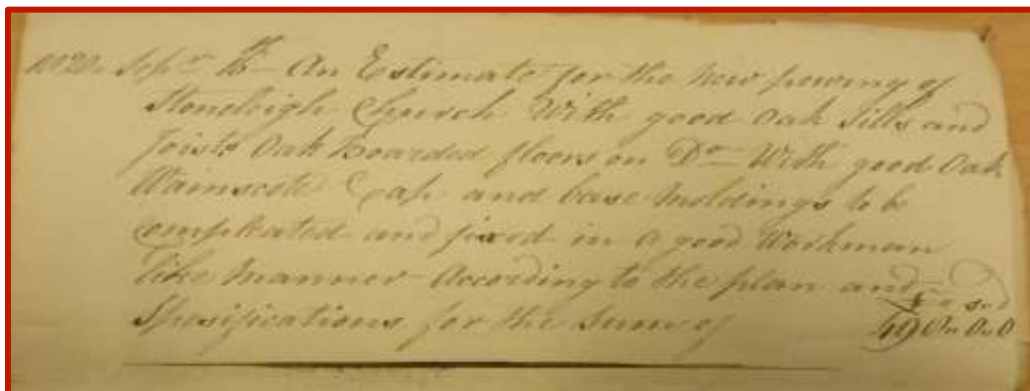 1820 Sepr 16th An Estimate for the New pewing of
Stoneleigh Church With good Oak Sills and
Joists Oak Boarded floors on Do With good Oak
Wainscote Cap and base moldings to be
Compleated and fixed in a good Workman
like Manner According to the plan and
Spesifications for the Sum of
£ s d
49 0 0